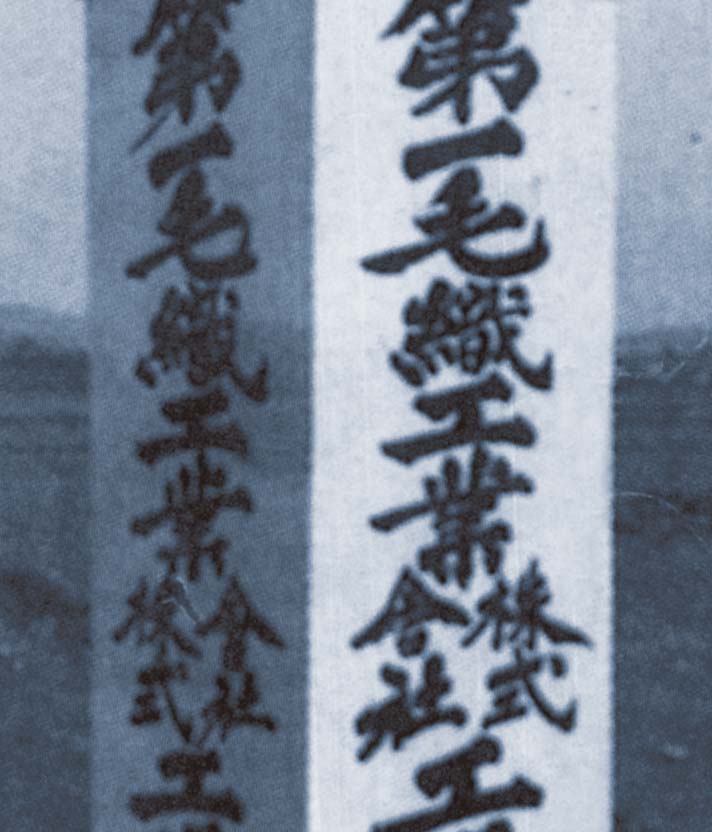 第一毛織工業株式會社工
第一毛織工業株式會社工